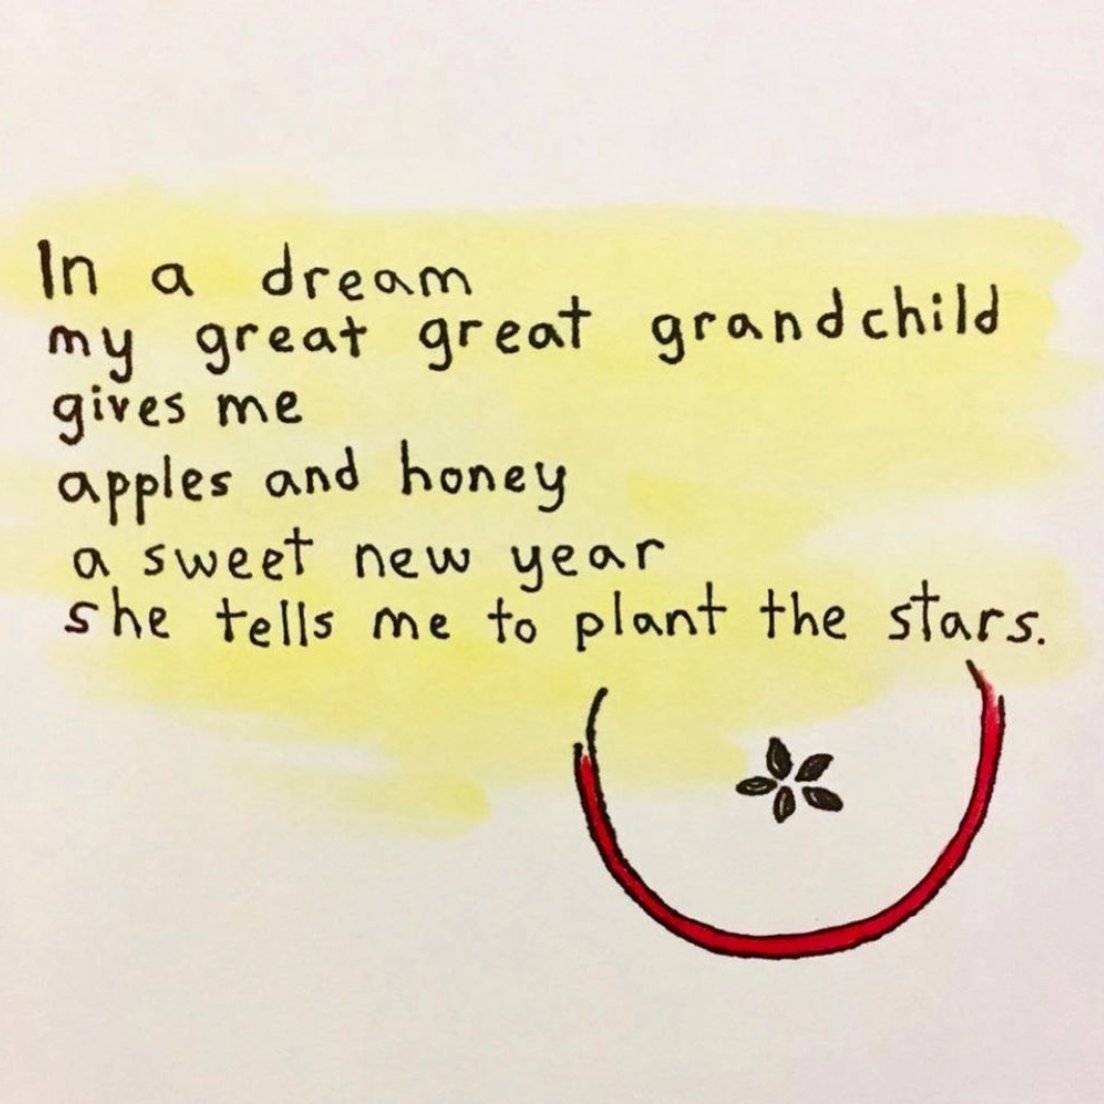 In a dream
my great great grandchild
gives me
apples and honey
a sweet new year
she tells me to plant the stars.